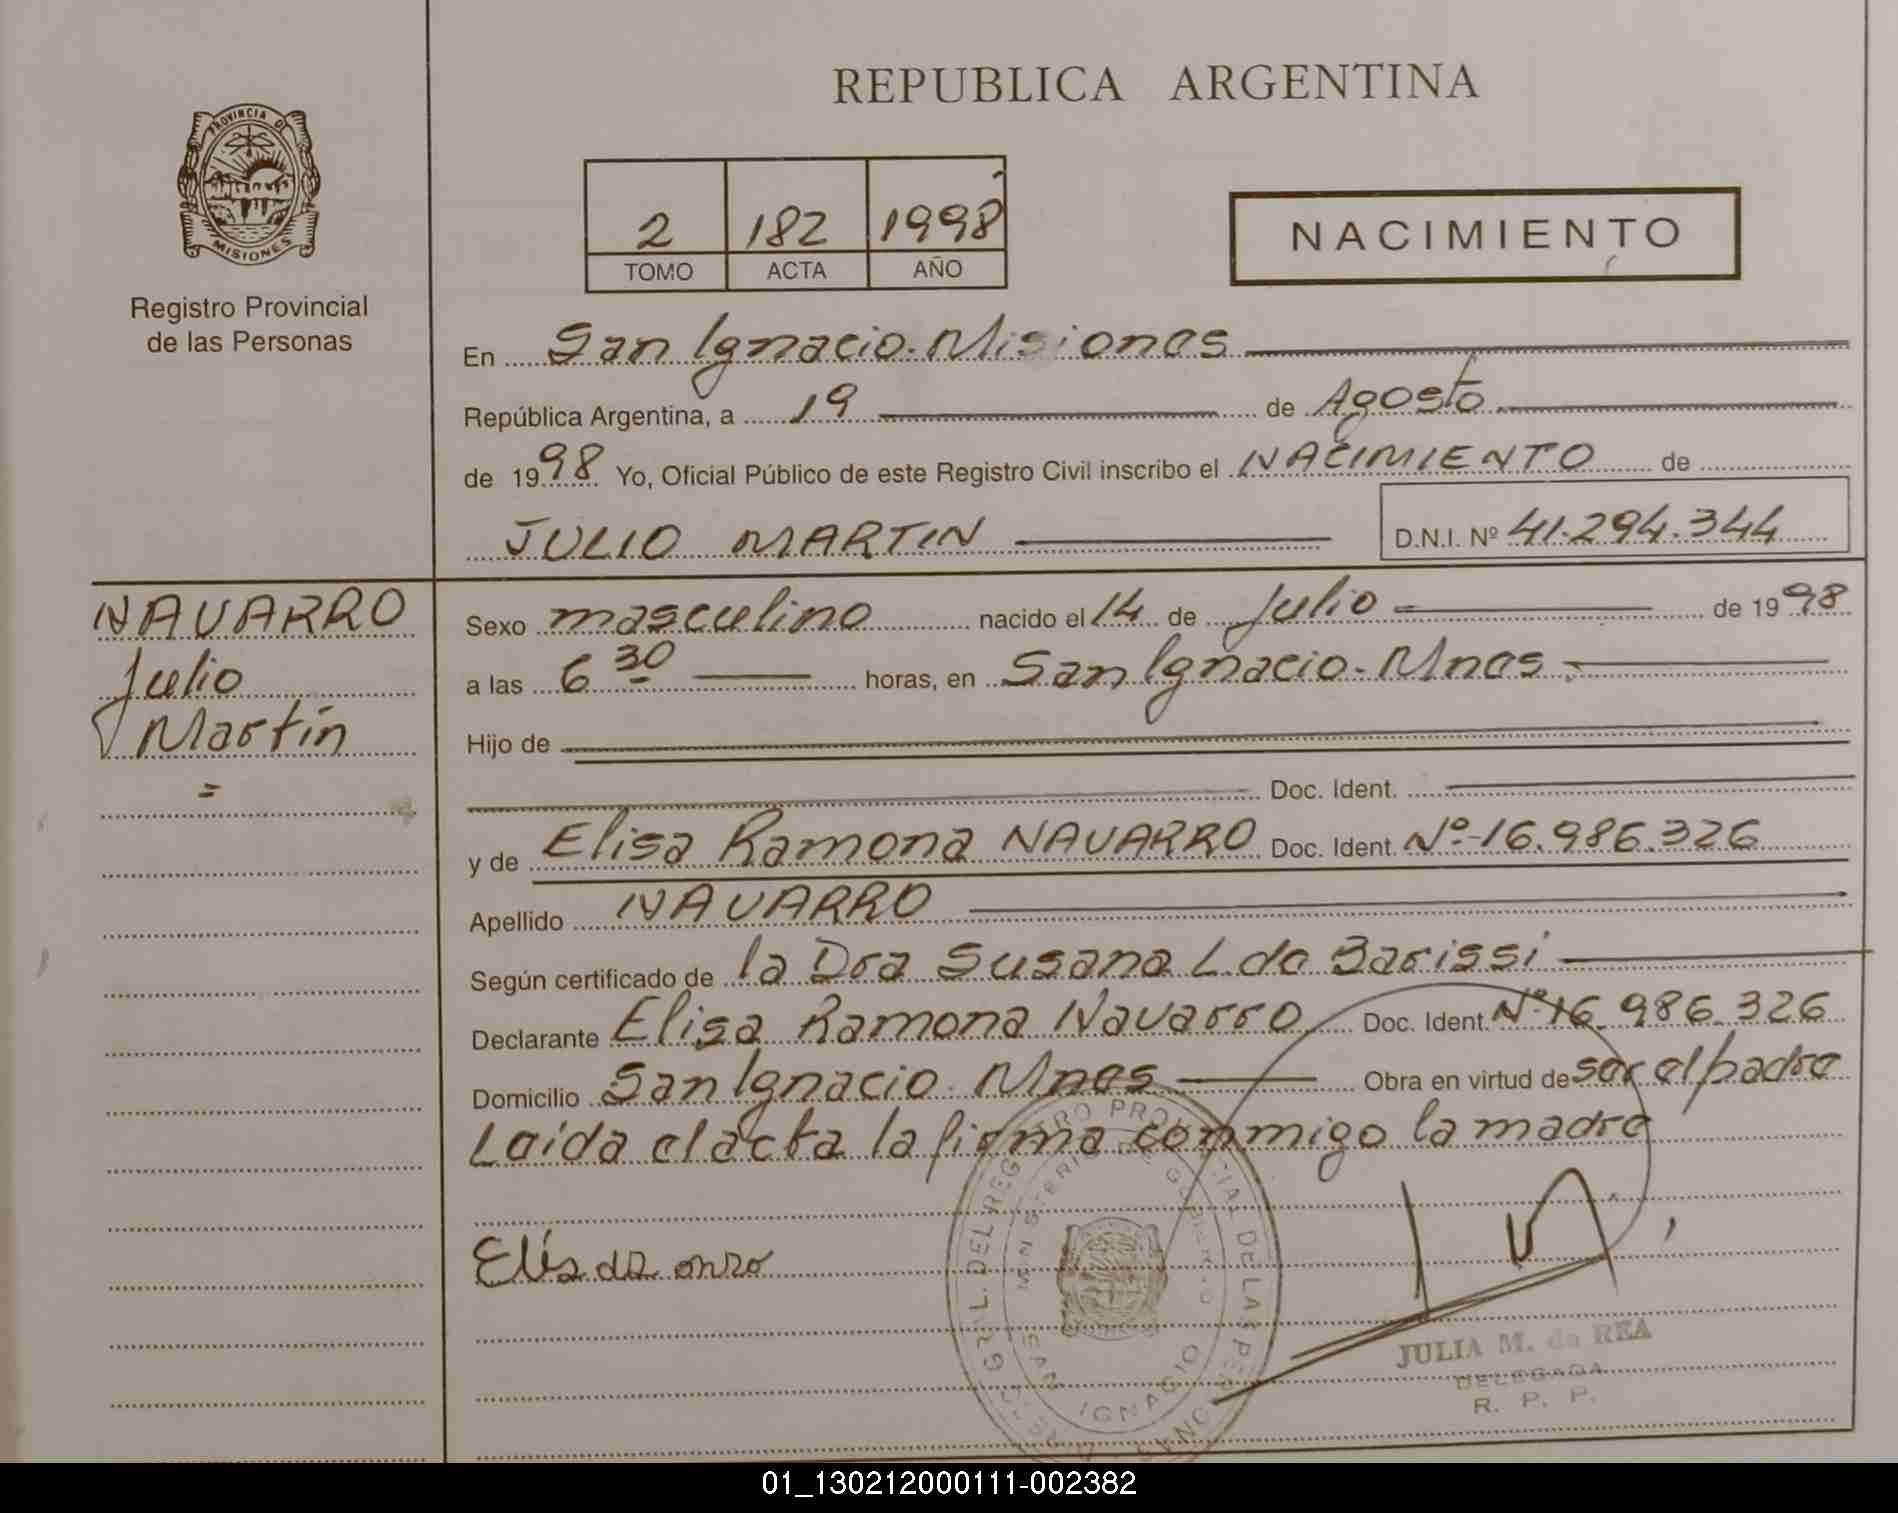 REPUBLICA ARGENTINA
PROVINCIA DE
MISIONES
Registro Provincial
de las Personas
2 182 1998
TOMO ACTA AÑO
NACIMIENTO
En San Ignacio. Misiones
República Argentina, a 19 de Agosto
de 1998 Yo, Oficial Público de este Registro Civil inscribo el NACIMIENTO de
JULIO MARTIN D.N.I. Nº 41.294.344
NAVARRO
Julio
Martín
=
Sexo masculino nacido el 14 de Julio de 1998
a las 6 30 horas, en San Ignacio - Mnes.
Hijo de
Doc. Ident.
y de Elisa Ramona NAVARRO Doc. Ident. Nº-16.986.326
Apellido NAVARRO
Según certificado de la Dra Susana L. de Barissi
Declarante Elisa Ramona Navarro Doc. Ident. Nº 16.986.326
Domicilio San Ignacio. Mnes Obra en virtud de ser el padre
Laida el acta la firma conmigo la madre
JULIA M. de REA
DELEGADA
R. P. P.
SAN IGNACIO
01_130212000111-002382